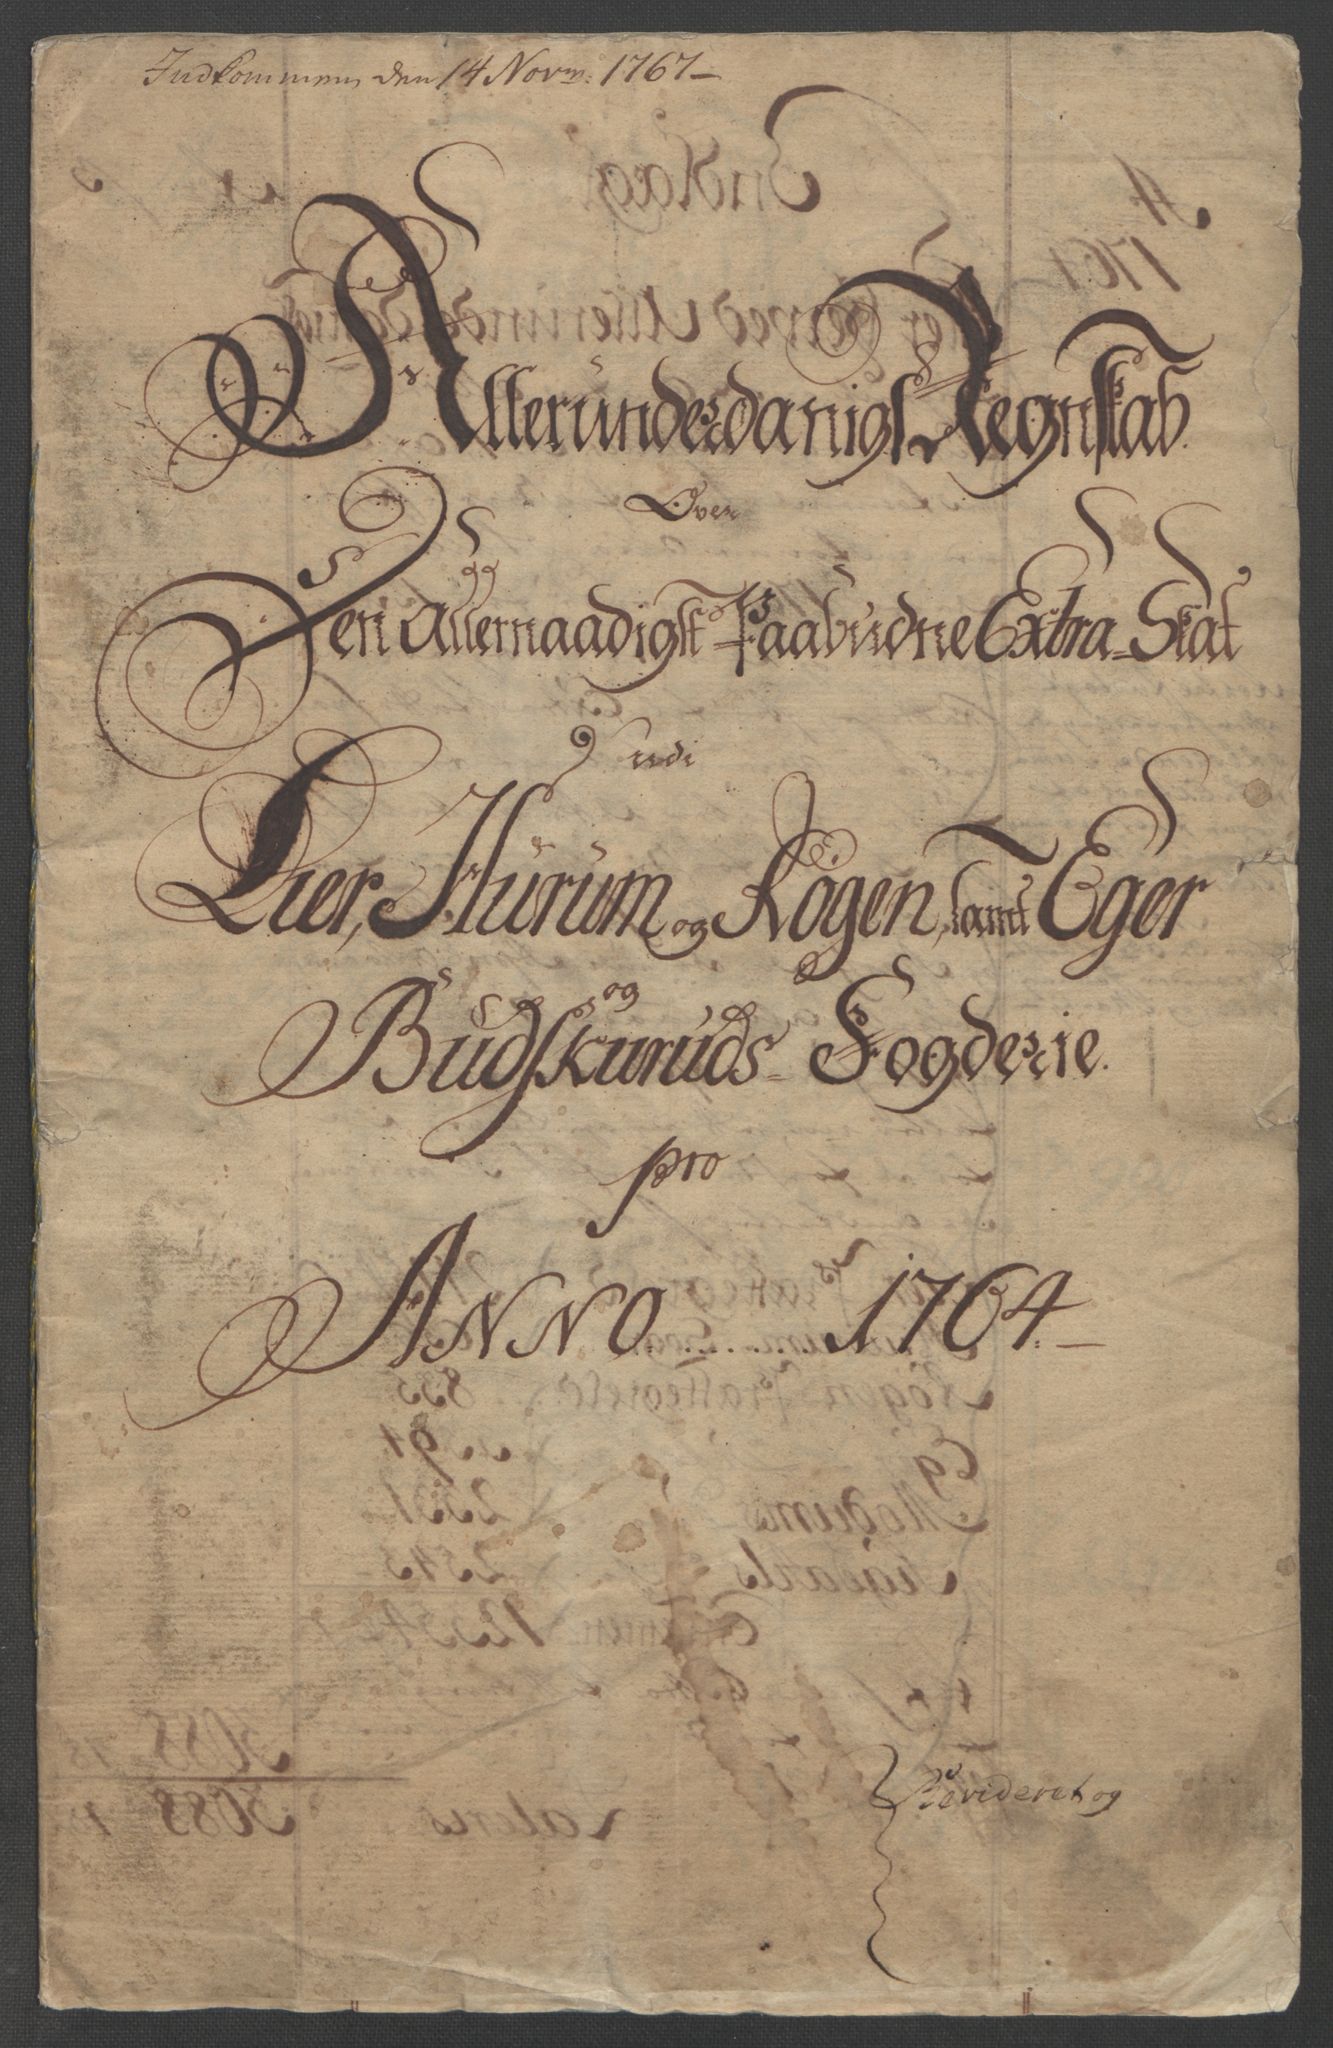 Indkommen den 14 Novr: 1767
Allerunderdanigst Regnskab
Over
Den Allernaadigst Paabudne Extra-Skat
udi
Lier, Hurum og Rögen, samt Eger
og
Budskuruds Fogderie.
pro
ANNO 1764.
Revideret og